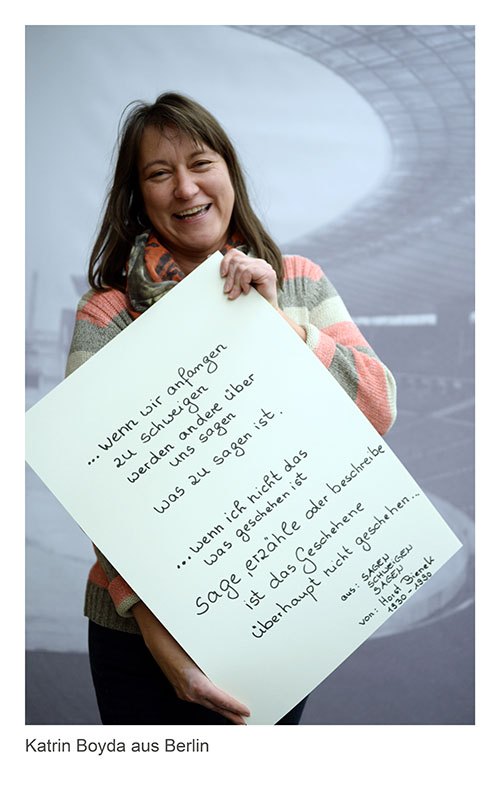 ...wenn wir anfangen
zu schweigen
werden andere über
uns sagen
was zu sagen ist.
...wenn ich nicht das
was geschehen ist
sage, erzähle oder beschreibe
ist das Geschehene
überhaupt nicht geschehen...
aus: SAGEN
SCHWEIGEN
SAGEN
von: Horst Bienek
1930-1990
Katrin Boyda aus Berlin